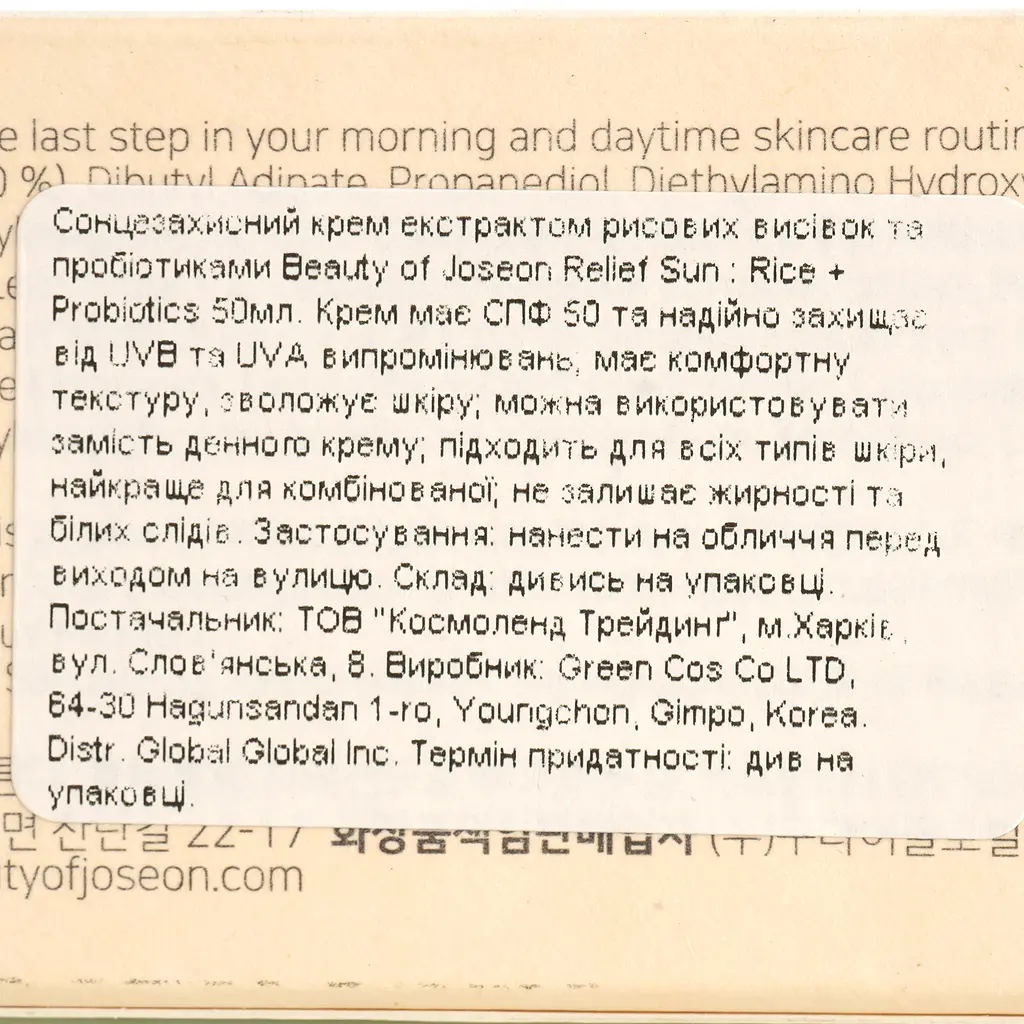 last step in your morning and daytime skincare
%), Dibutyl Adipate, Propanediol, Diethylamino
Сонцезахисний крем екстрактом рисових висівок та
пробіотиками Beauty of Joseon Relief Sun : Rice +
Probiotics 50мл. Крем має СПФ 50 та надійно захищає
від UVB та UVA випромінювань; має комфортну
текстуру, зволожує шкіру; можна використовувати
замість денного крему; підходить для всіх типів шкіри,
найкраще для комбінованої; не залишає жирності та
білих слідів. Застосування: нанести на обличчя перед
виходом на вулицю. Склад: дивись на упаковці.
Постачальник: ТОВ "Космоленд Трейдинґ", м.Харків,
вул. Слов'янська, 8. Виробник: Green Cos Co LTD,
64-30 Hagunsandan 1-ro, Youngchon, Gimpo, Korea.
Distr. Global Global Inc. Термін придатності: див на
упаковці.
22-17 화장품책임판매업자
tyofjoseon.com